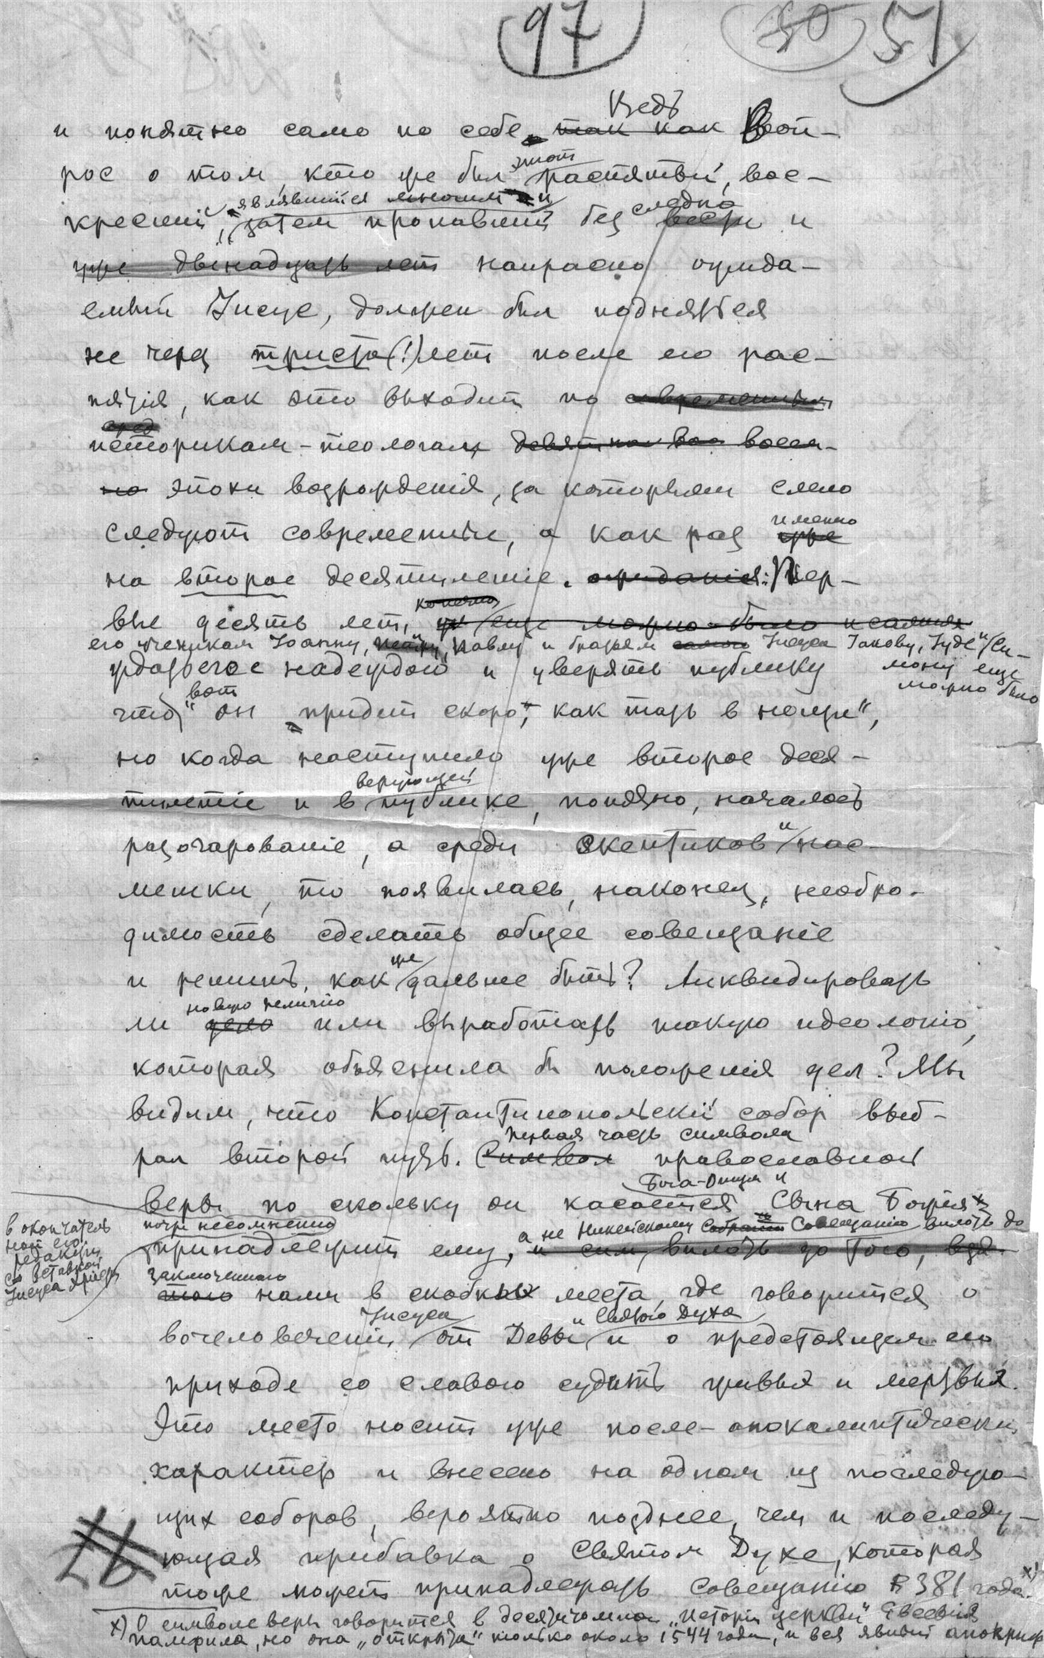 97 50 51
Ведь
и понятно само по себе, так как Воп-
рос о том кто же был этот распятый, вос-
кресший, являвшийся многим и
затем пропавший без следа вести и
уже двенадцать лет напрасно ожида-
емый Иисус, должен был подняться
не через триста (!) лет после его рас-
пятія, как это выходит по современным
историкам-теологам
эпохи возрожденія, за которыми слепо
следуют современные, а как раз именно уже
на второе десятилетіе. ожиданія: Пер-
вые десять лет, конечно еще можно было
его ученикам Іоанну, Павлу и братьям самого Іисуса Іакову, Іуде и Си-
мону еще можно было
убаюкивать надеждой и уверять публику
что вот „он придет скоро, как тать в нощи“,
но когда наступило уже второе деся-
тилетіе и в верующей публике, понятно, началось
разочарованіе, а среди скептиков и нас-
мешки, то появилась, наконец, необхо-
димость сделать общее совещаніе
и решить, как же дальше быть? Ликвидировать
ли дело новую религію или выработать такую идеологію,
которая объяснила бы положенія дел? Мы
видим, что Константинопольскій собор выб-
рал второй путь. Символ первая часть символа православной
веры по скольку он касается Бога-Отца и Сына Божія
в окончатель
ной его
редакціи
со вставкой
Іисуса Христа
почти несомненно
принадлежит ему, а не Никейскому Совещанію вплоть до
того заключеннаго нами в скобках места, где говорится о
вочеловеченіи Іисуса от Девы и Святого Духа и о предстоящем его
приходе со славою судить живых и мертвых.
Это место носит уже после-апокалиптическій
характер и внесено на одном из последую-
щих соборов, вероятно позднее, чем и последу-
ющая прибавка о Святом Духе, которая
тоже может принадлежать совещанію 381 года x)
x) О символе веры говорится в десятитомной „Исторіи церкви“ Евсевія
Памфила, но она „открыта“ только около 1544 года, и вся явный апокриф